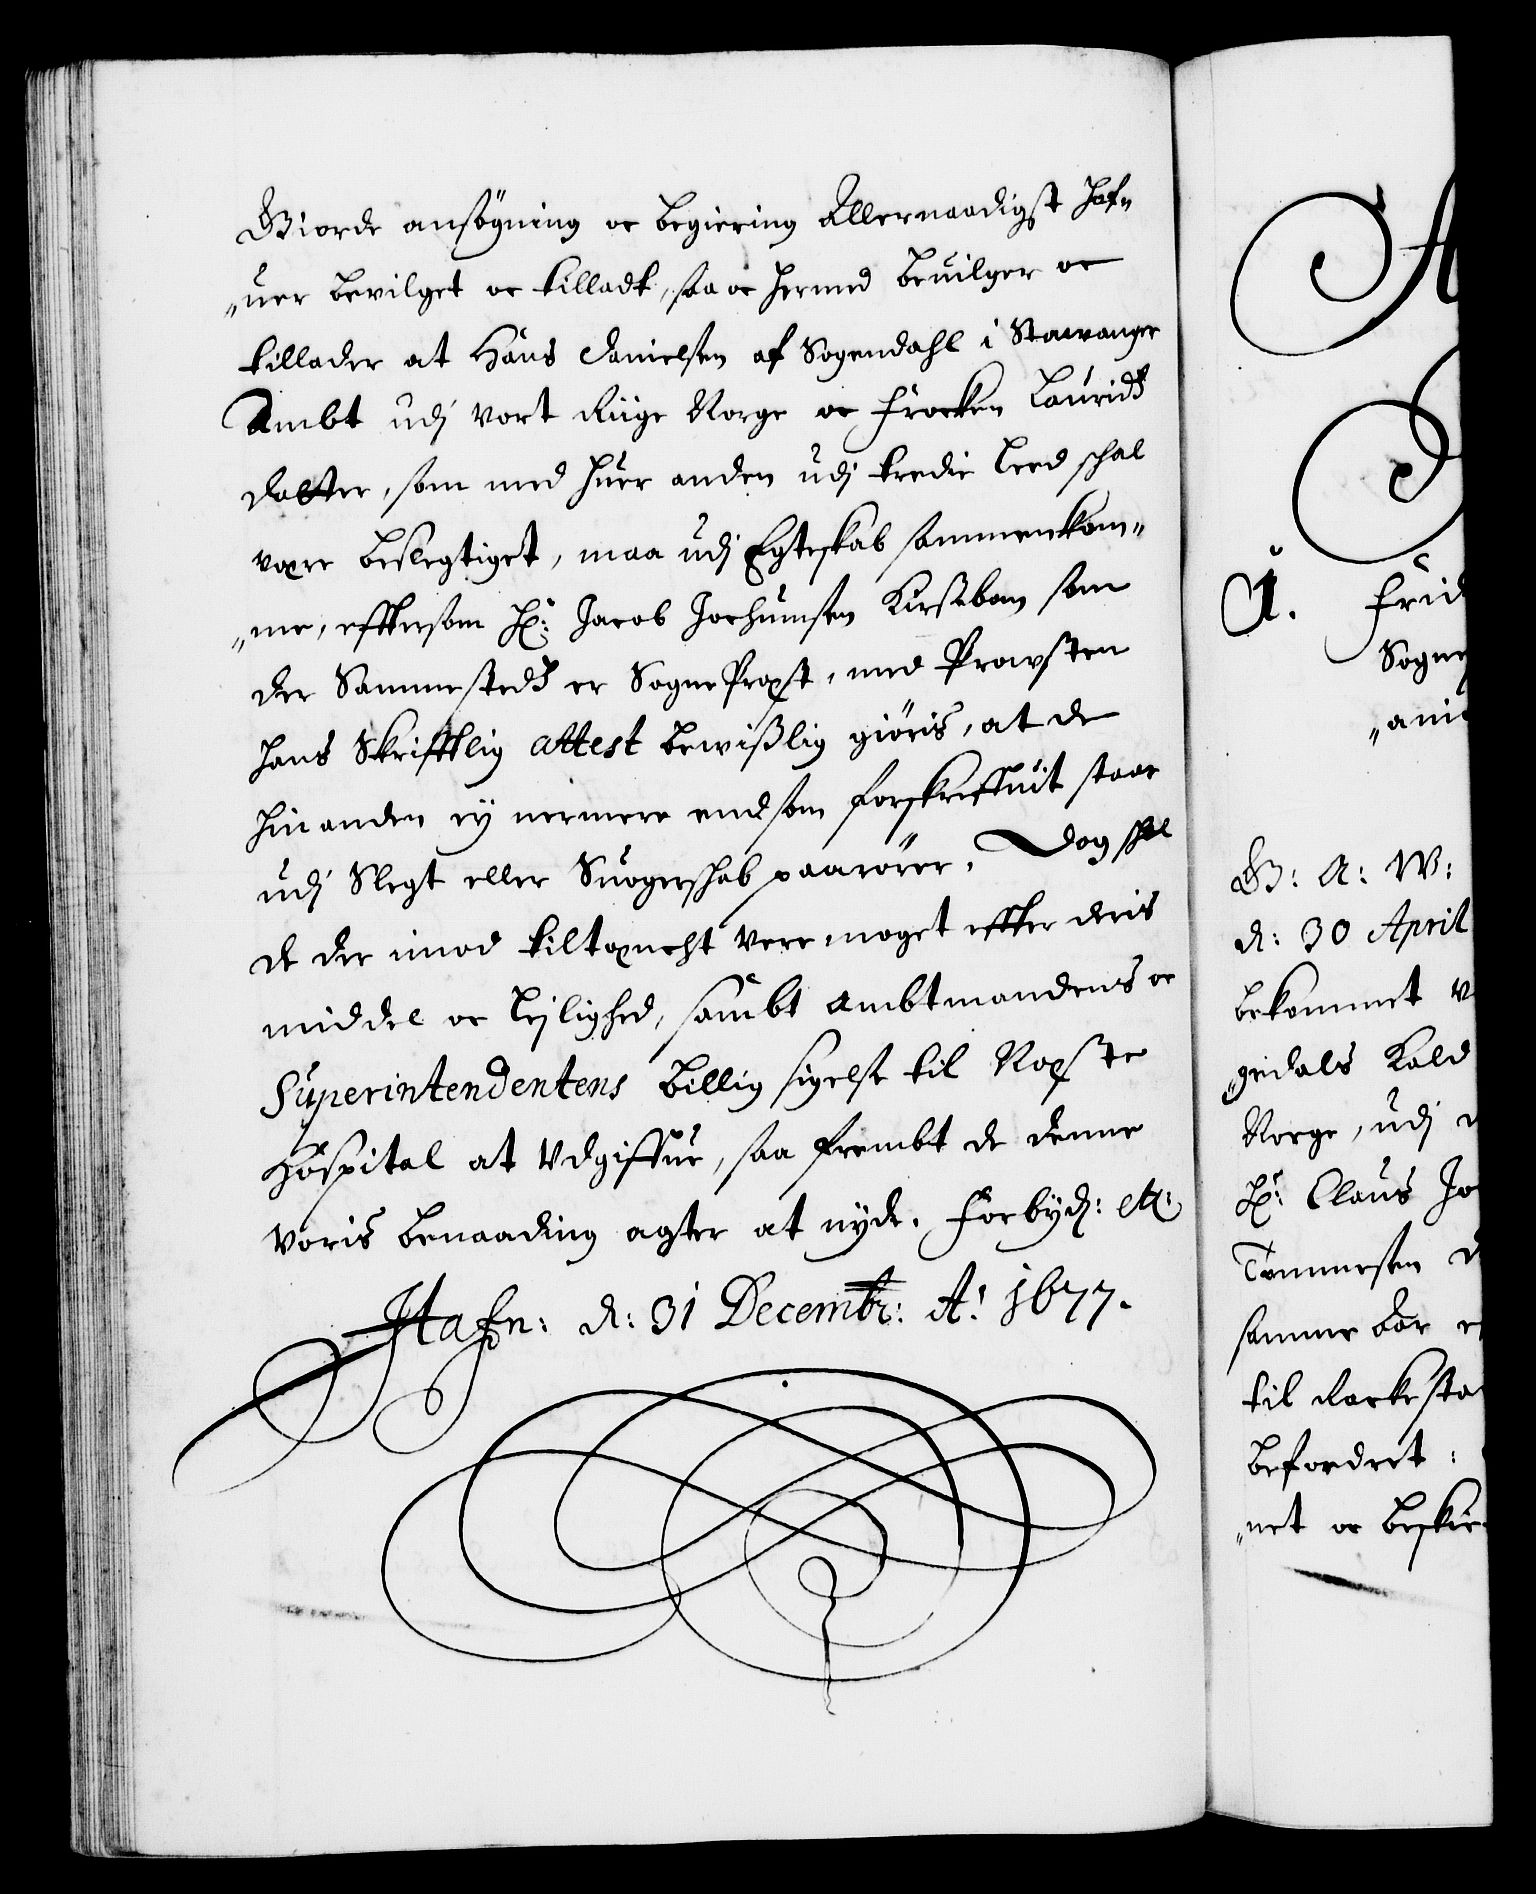 Giorde ansögning oc begiering Allernaadigst haf„
„uer bevilget oc tilladt, saa oc hermed beuilger oc
tillader at Hans Danielsen af Sogendahl i Stawanger
Ambt udj vort Riige Norge oc Frocken Lauridz
datter, som med huer anden udj tredie Leed schal
være beslegtiget, maa udj Egteskab sammenkom„
„me, efftersom Hr: Jacob Jochumsen Kirsebom som
der Sammestedz er SognePræst, med Prowsten
hans Skrifftlig attest bewißlig giöris, at de
hin anden ey nermere end som forskreffuit staar
udj Slegt eller Suogerschab paarörer. Dog schal
de der imod tiltænckt vere noget effter deris
middel oc Lejlighed, sambt Ambtmandens oc
Superintendentens billig sigelse til Næste
Hospital at Udgiffue, saa frembt de denne
voris benaading agter at nyde. Forbyd: etc:
Hafn: d: 31 Decembr: Ao: 1677.
1. Frid
Sogne
„ani
G: A: W:
d: 30 April
bekommet
„gndals Kald
Norge, udj
Hr: Claus Jo
Tommesen
samme
til
befordret:
„net oc beskie